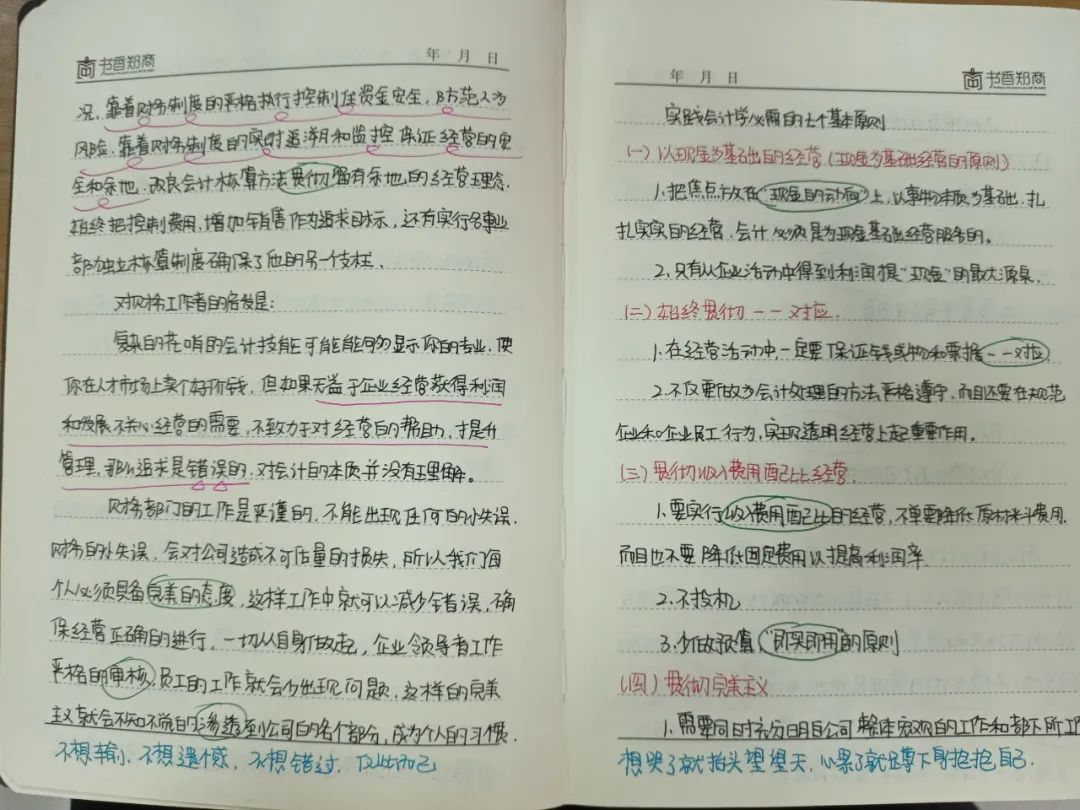 书香郑商
年 月 日
况，靠着财务制度的严格执行控制保资金安全，防范人为
风险，靠着财务制度的实时追溯和监控保证经营的安
全和余地，改良会计核算方法贯彻留有余地的经营理念，
始终把控制费用，增加销售作为追求目标，还有实行各事业
部独立核算制度确保了他的另一个支柱。
对财务工作者的启发是：
复杂的花哨的会计技能可能能够显示你的专业，使
你在人才市场上卖个好价钱，但如果无益于企业经营获得利润
和发展，不关心经营的需要，不致力于对经营的帮助，才提升
管理，那么追求是错误的，对会计的本质并没有理解。
财务部门的工作是严谨的，不能出现任何的小失误，
财务的小失误，会对公司造成不可估量的损失，所以我们每
个人必须具备完美的态度，这样工作中就可以减少错误，确
保经营正确的进行，一切从自身做起，企业领导者工作
严格的审核，员工的工作就会少出现问题，这样的完美
主义就会不知不觉的渗透到公司的各个部分，成为个人的习惯。
不想输，不想遗憾，不想错过，仅此而已
年 月 日
书香郑商
实践会计学必需的七个基本原则
(一)以现金为基础的经营(现金为基础经营的原则)
1.把焦点放在“现金的动向”上，以事物本质为基础，扎
扎实实的经营，会计必须是为现金基础经营服务的。
2.只有从企业活动中得到利润提“现金”的最大源泉，
(二)始终贯彻一一对应.
1.在经营活动中，一定要保证钱或物和票据一一对应
2.不仅要做为会计处理的方法严格遵守，而且还要在规范
企业和企业员工行为，实现透明经营上起重要作用。
(三)贯彻收入费用配比经营.
1.要实行收入费用配比的经营，不单要降低原材料费用，
而且也不要降低固定费用以提高利润率
2.不投机
3.少做预值，“即买即用”的原则
(四)贯彻完美主义
1.需要同时充分明白公司整体宏观的工作和部下所工
想哭了就抬头望望天，心累了就蹲下身抱抱自己.